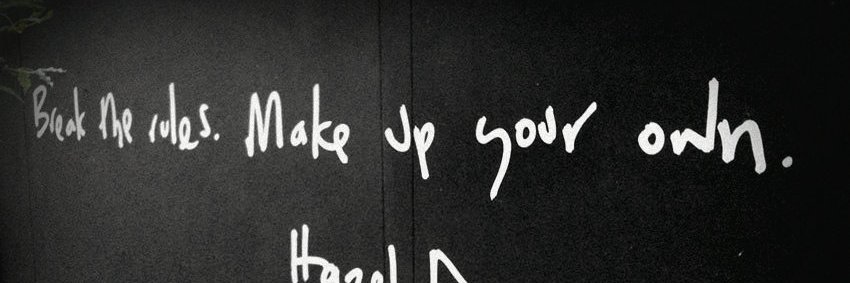 Break the rules. Make up your own.
Hazel